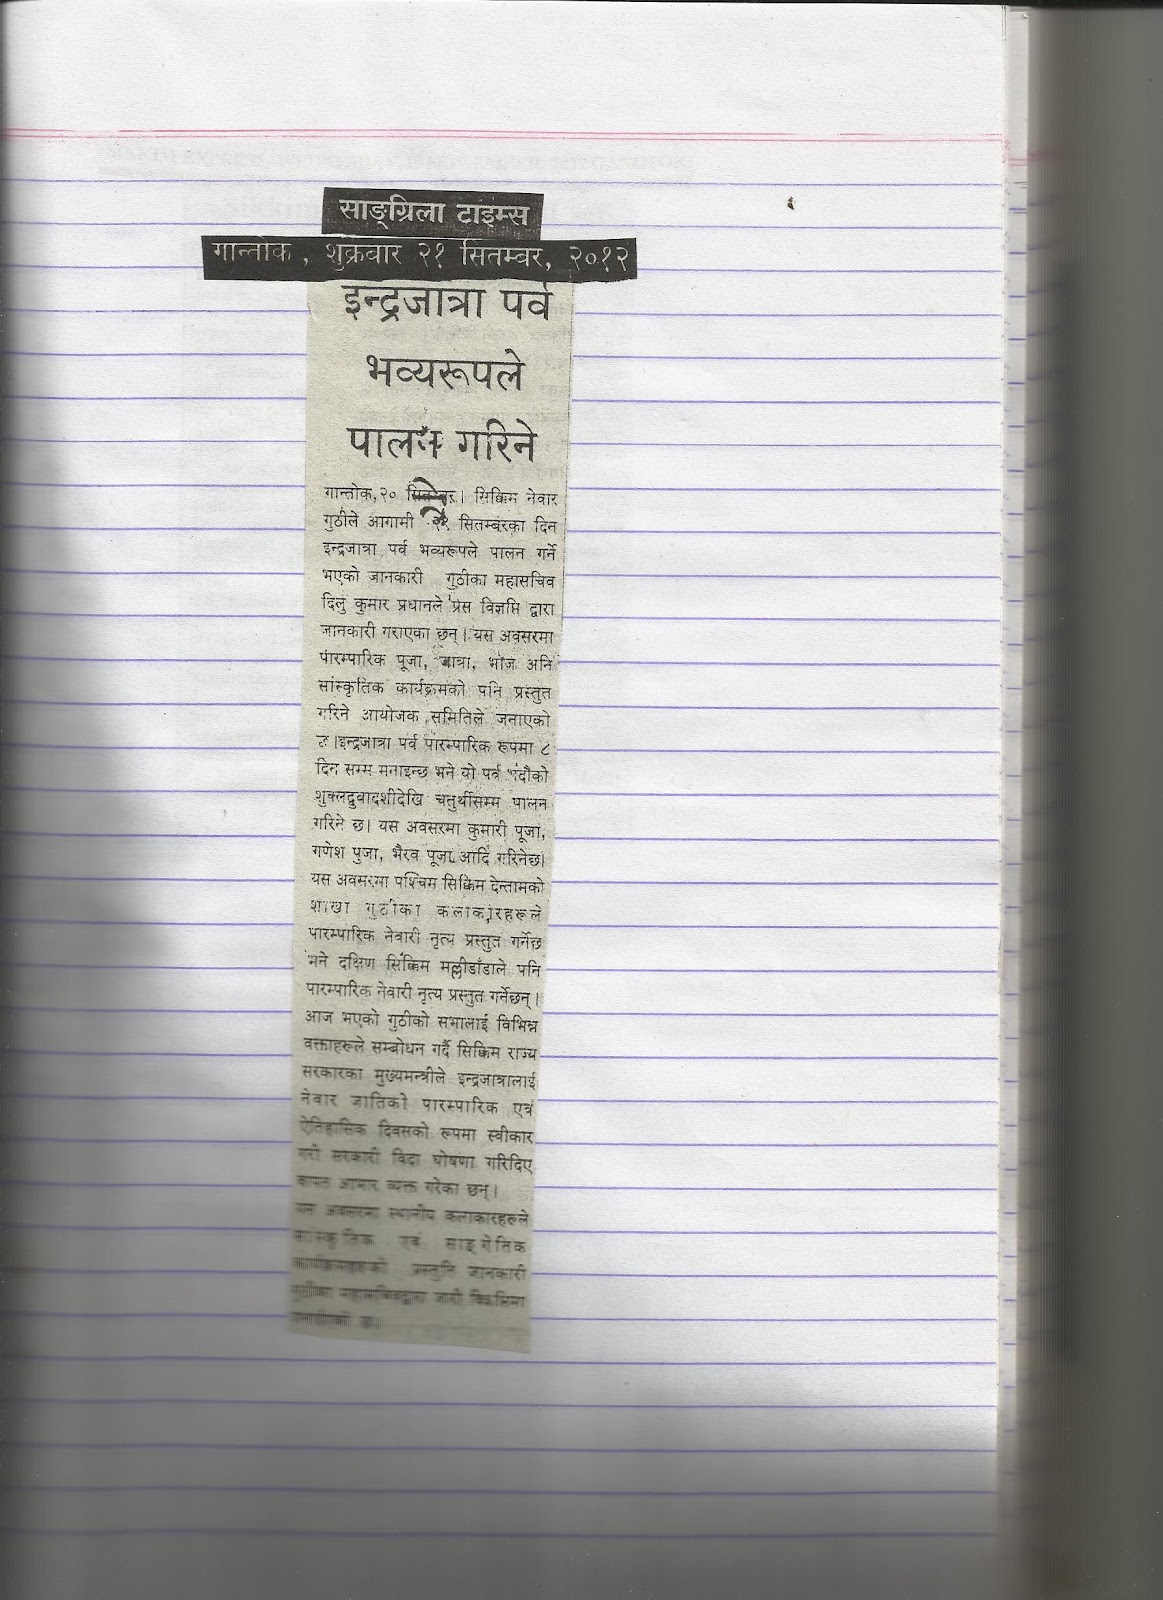 साङ्ग्रिला टाइम्स
गान्तोक, शुक्रबार २१ सितम्बर, २०१२
इन्द्रजात्रा पर्व
भव्यरूपले
पालन गरिने
गान्तोक,२० सितम्बर। सिक्किम नेवार
गुठीले आगामी सितम्बरका दिन
इन्द्रजात्रा पर्व भव्यरूपले पालन गर्ने
भएको जानकारी गुठीका महासचिव
दिलु कुमार प्रधानले प्रेस विज्ञप्ति द्वारा
जानकारी गराएका छन्। यस अवसरमा
पारम्पारिक पूजा, जात्रा, भोज अनि
सांस्कृतिक कार्यक्रमको पनि प्रस्तुत
गरिने आयोजक समितिले जनाएको
छ।इन्द्रजात्रा पर्व पारम्पारिक रूपमा ८
दिन सम्म मनाइन्छ भने यो पर्व भदौको
शुक्लद्वादशीदेखि चतुर्थीसम्म पालन
गरिने छ। यस अवसरमा कुमारी पूजा,
गणेश पुजा, भैरव पूजा आदि गरिनेछ।
यस अवसरमा पश्चिम सिक्किम देन्तामको
शाखा गुठीका कलाकारहरूले
पारम्पारिक नेवारी नृत्य प्रस्तुत गर्नेछ
भने दक्षिण सिक्किम मल्लीडाँडाले पनि
पारम्पारिक नेवारी नृत्य प्रस्तुत गर्नेछन्।
आज भएको गुठीको सभालाई विभिन्न
वक्ताहरूले सम्बोधन गर्दै सिक्किम राज्य
सरकारका मुख्यमन्त्रीले इन्द्रजात्रालाई
नेवार जातिको पारम्पारिक एवं
ऐतिहासिक दिवसको रूपमा स्वीकार
गरी सरकारी विदा घोषणा गरिदिए
बापत आभार व्यक्त गरेका छन्।
यस अवसरमा स्थानीय कलाकारहरूले
सांस्कृतिक एवं साङ्गेतिक
प्रस्तुति जानकारी
गुठीका महासचिवद्वारा जारी
छ।